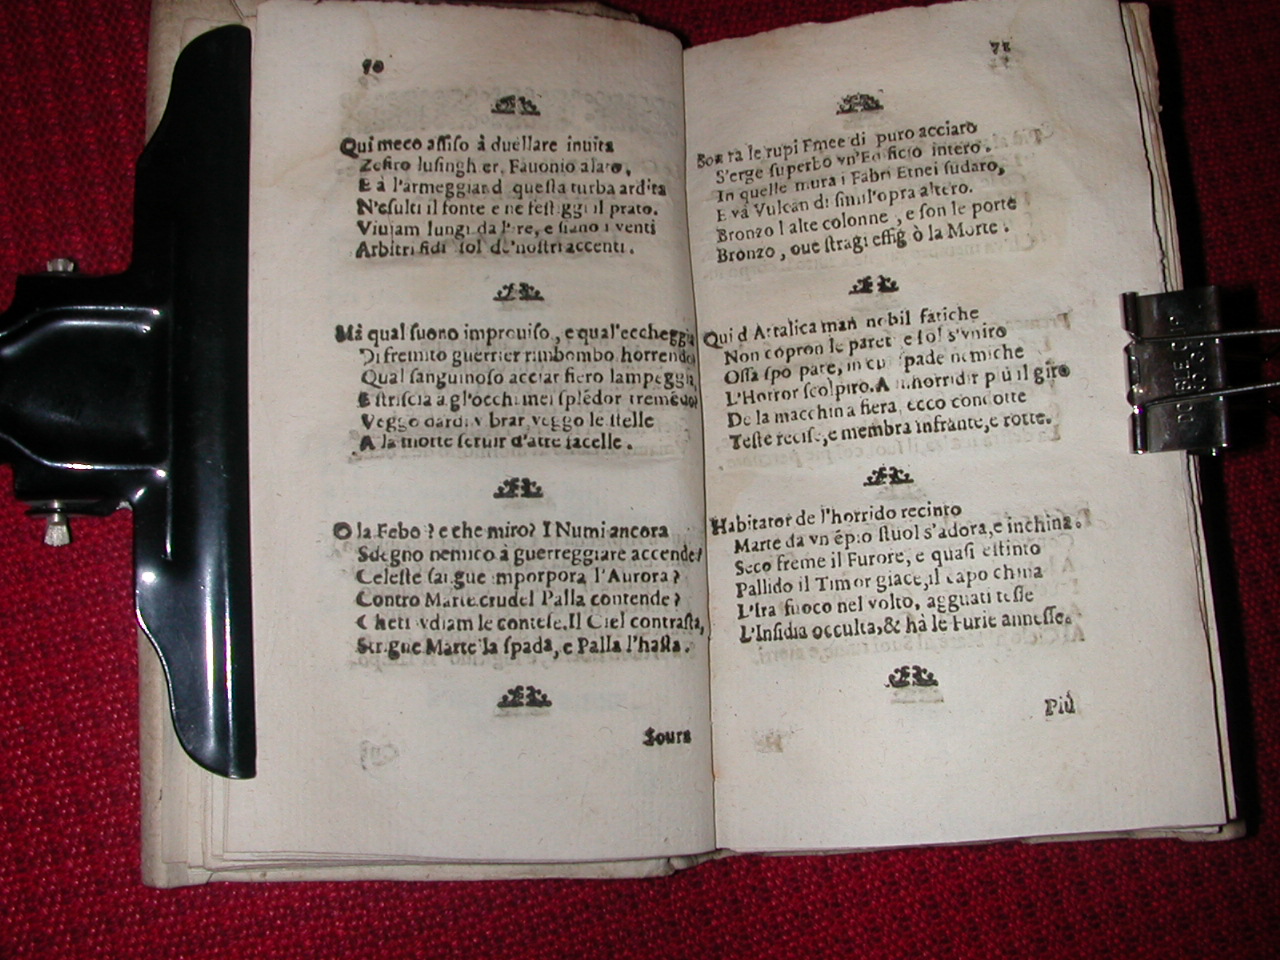 70
Qui meco assiso à duellare inuita
Zefiro lusingh er, Fauonio alato,
E à l'armeggiar d questa turba ardita
N'esulti il fonte e ne fest ggi il prato.
Viuiam lungi da l' re, e siano i venti
Arbitri fidi sol de' nostri accenti.
Mà qual suono improuiso, e qual'eccheggia
Di fremito guerrier rimbombo horrendo
Qual sanguinoso acciar fiero lampeggia,
E striscia a gl'occh miei splēdor tremēdo?
Veggo dardi v brar, veggo le stelle
A la morte seruir d'atre facelle.
O la Febo? e che miro? I Numi ancora
Sdegno nemico à guerreggiare accende?
Celeste sangue mporpora l'Aurora?
Contro Marte crudel Palla contende?
Cheti vdiam le contese. Il Ciel contrasta,
Stringue Marte la spada, e Palla l'hasta.
Soura
71
Soura le rupi Emee di puro acciaro
S'erge superbo vn'Edificio intero.
In quelle mura i Fabri Etnei sudaro,
E và Vulcan di simil'opra altero.
Bronzo l alte colonne, e son le porte
Bronzo, oue stragi effig ò la Morte.
Qui d Attalica man nobil fatiche
Non copron le paret e sol s'vniro
Ossa spo pate, in cu spade nemiche
L'Horror scolpiro. A inhorridir più il giro
De la macchina fiera, ecco condotte
Teste recise, e membra infrante, e rotte.
Habitator de l'horrido recinto
Marte da vn épio stuol s'adora, e inchina.
Seco freme il Furore, e quasi estinto
Pallido il Timor giace, il capo china
L'Ira fuoco nel volto, agguati tesse
L'Insidia occulta, & hà le Furie annesse.
Più